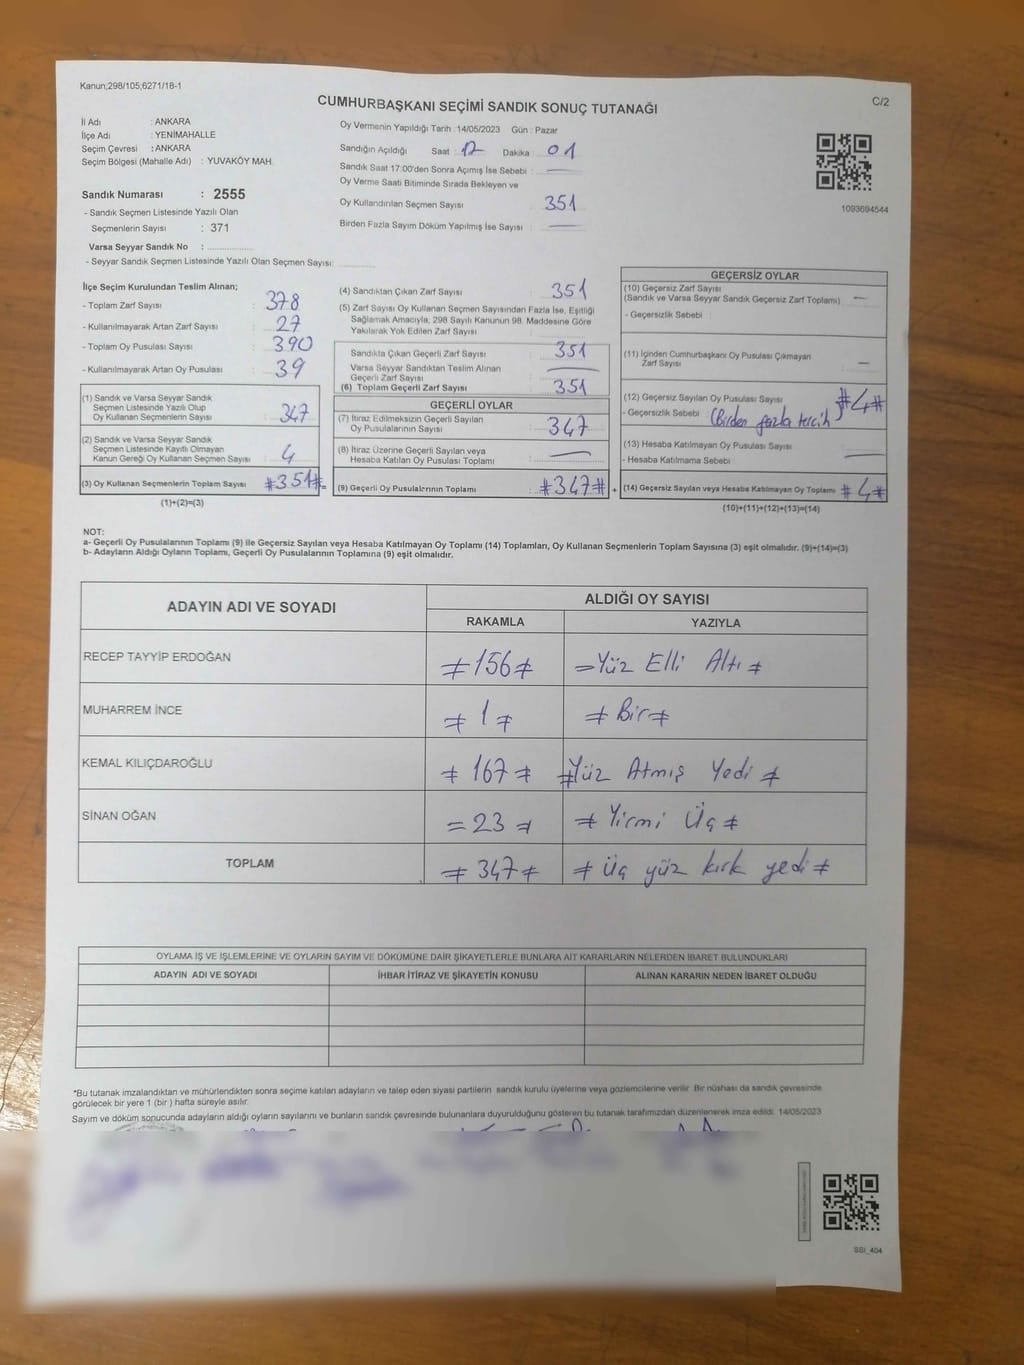 Kanun;298/105;6271/18-1
C/2
CUMHURBAŞKANI SEÇİMİ SANDIK SONUÇ TUTANAĞI
İl Adı : ANKARA
İlçe Adı : YENİMAHALLE
Seçim Çevresi : ANKARA
Seçim Bölgesi (Mahalle Adı) : YUVAKÖY MAH.
Sandık Numarası : 2555
- Sandık Seçmen Listesinde Yazılı Olan
Seçmenlerin Sayısı : 371
Varsa Seyyar Sandık No :
- Seyyar Sandık Seçmen Listesinde Yazılı Olan Seçmen Sayısı:
Oy Vermenin Yapıldığı Tarih :14/05/2023 Gün : Pazar
Sandığın Açıldığı Saat : 17 Dakika : 01
Sandık Saat 17:00'den Sonra Açımış İse Sebebi : —
Oy Verme Saati Bitiminde Sırada Bekleyen ve
Oy Kullandırılan Seçmen Sayısı 351
Birden Fazla Sayım Döküm Yapılmış İse Sayısı : —
1093694544
İlçe Seçim Kurulundan Teslim Alınan;
- Toplam Zarf Sayısı : 378
- Kullanılmayarak Artan Zarf Sayısı : 27
- Toplam Oy Pusulası Sayısı : 390
- Kullanılmayarak Artan Oy Pusulası : 39
(1) Sandık ve Varsa Seyyar Sandık
Seçmen Listesinde Yazılı Olup
Oy Kullanan Seçmenlerin Sayısı : 347
(2) Sandık ve Varsa Seyyar Sandık
Seçmen Listesinde Kayıtlı Olmayan
Kanun Gereği Oy Kullanan Seçmen Sayısı : 4
(3) Oy Kullanan Seçmenlerin Toplam Sayısı : #351# =
(1)+(2)=(3)
(4) Sandıktan Çıkan Zarf Sayısı : 351
(5) Zarf Sayısı Oy Kullanan Seçmen Sayısından Fazla İse, Eşitliği
Sağlamak Amacıyla, 298 Sayılı Kanunun 98. Maddesine Göre
Yakılarak Yok Edilen Zarf Sayısı :
Sandıkta Çıkan Geçerli Zarf Sayısı : 351
Varsa Seyyar Sandıktan Teslim Alınan
Geçerli Zarf Sayısı : —
(6) Toplam Geçerli Zarf Sayısı : 351
GEÇERLİ OYLAR
(7) İtiraz Edilmeksizin Geçerli Sayılan
Oy Pusulalarının Sayısı : 347
(8) İtiraz Üzerine Geçerli Sayılan veya
Hesaba Katılan Oy Pusulası Toplamı : —
(9) Geçerli Oy Pusulalarının Toplamı : #347# +
GEÇERSİZ OYLAR
(10) Geçersiz Zarf Sayısı
(Sandık ve Varsa Seyyar Sandık Geçersiz Zarf Toplamı) : —
- Geçersizlik Sebebi :
(11) İçinden Cumhurbaşkanı Oy Pusulası Çıkmayan
Zarf Sayısı : —
(12) Geçersiz Sayılan Oy Pusulası Sayısı : #4#
- Geçersizlik Sebebi : (Birden fazla tercih)
(13) Hesaba Katılmayan Oy Pusulası Sayısı : —
- Hesaba Katılmama Sebebi :
(14) Geçersiz Sayılan veya Hesaba Katılmayan Oy Toplamı : #4#
(10)+(11)+(12)+(13)=(14)
NOT:
a- Geçerli Oy Pusulalarının Toplamı (9) ile Geçersiz Sayılan veya Hesaba Katılmayan Oy Toplamı (14) Toplamları, Oy Kullanan Seçmenlerin Toplam Sayısına (3) eşit olmalıdır. (9)+(14)=(3)
b- Adayların Aldığı Oyların Toplamı, Geçerli Oy Pusulalarının Toplamına (9) eşit olmalıdır.
ADAYIN ADI VE SOYADI ALDIĞI OY SAYISI
RAKAMLA YAZIYLA
RECEP TAYYİP ERDOĞAN ≠156≠ =Yüz Elli Altı≠
MUHARREM İNCE ≠ 1 ≠ ≠ Bir≠
KEMAL KILIÇDAROĞLU ≠ 167 ≠ ≠Yüz Atmış Yedi ≠
SİNAN OĞAN = 23 ≠ ≠ Yirmi Üç ≠
TOPLAM ≠ 347≠ ≠ Üç yüz kırk yedi ≠
OYLAMA İŞ VE İŞLEMLERİNE VE OYLARIN SAYIM VE DÖKÜMÜNE DAİR ŞİKAYETLERLE BUNLARA AİT KARARLARIN NELERDEN İBARET BULUNDUKLARI
ADAYIN ADI VE SOYADI İHBAR İTİRAZ VE ŞİKAYETİN KONUSU ALINAN KARARIN NEDEN İBARET OLDUĞU
*Bu tutanak imzalandıktan ve mühürlendikten sonra seçime katılan adayların ve talep eden siyasi partilerin sandık kurulu üyelerine veya gözlemcilerine verilir. Bir nüshası da sandık çevresinde
görülecek bir yere 1 (bir ) hafta süreyle asılır.
Sayım ve döküm sonucunda adayların aldığı oyların sayılarını ve bunların sandık çevresinde bulunanlara duyurulduğunu gösteren bu tutanak tarafımızdan düzenlenerek imza edildi. 14/05/2023
SSI_404